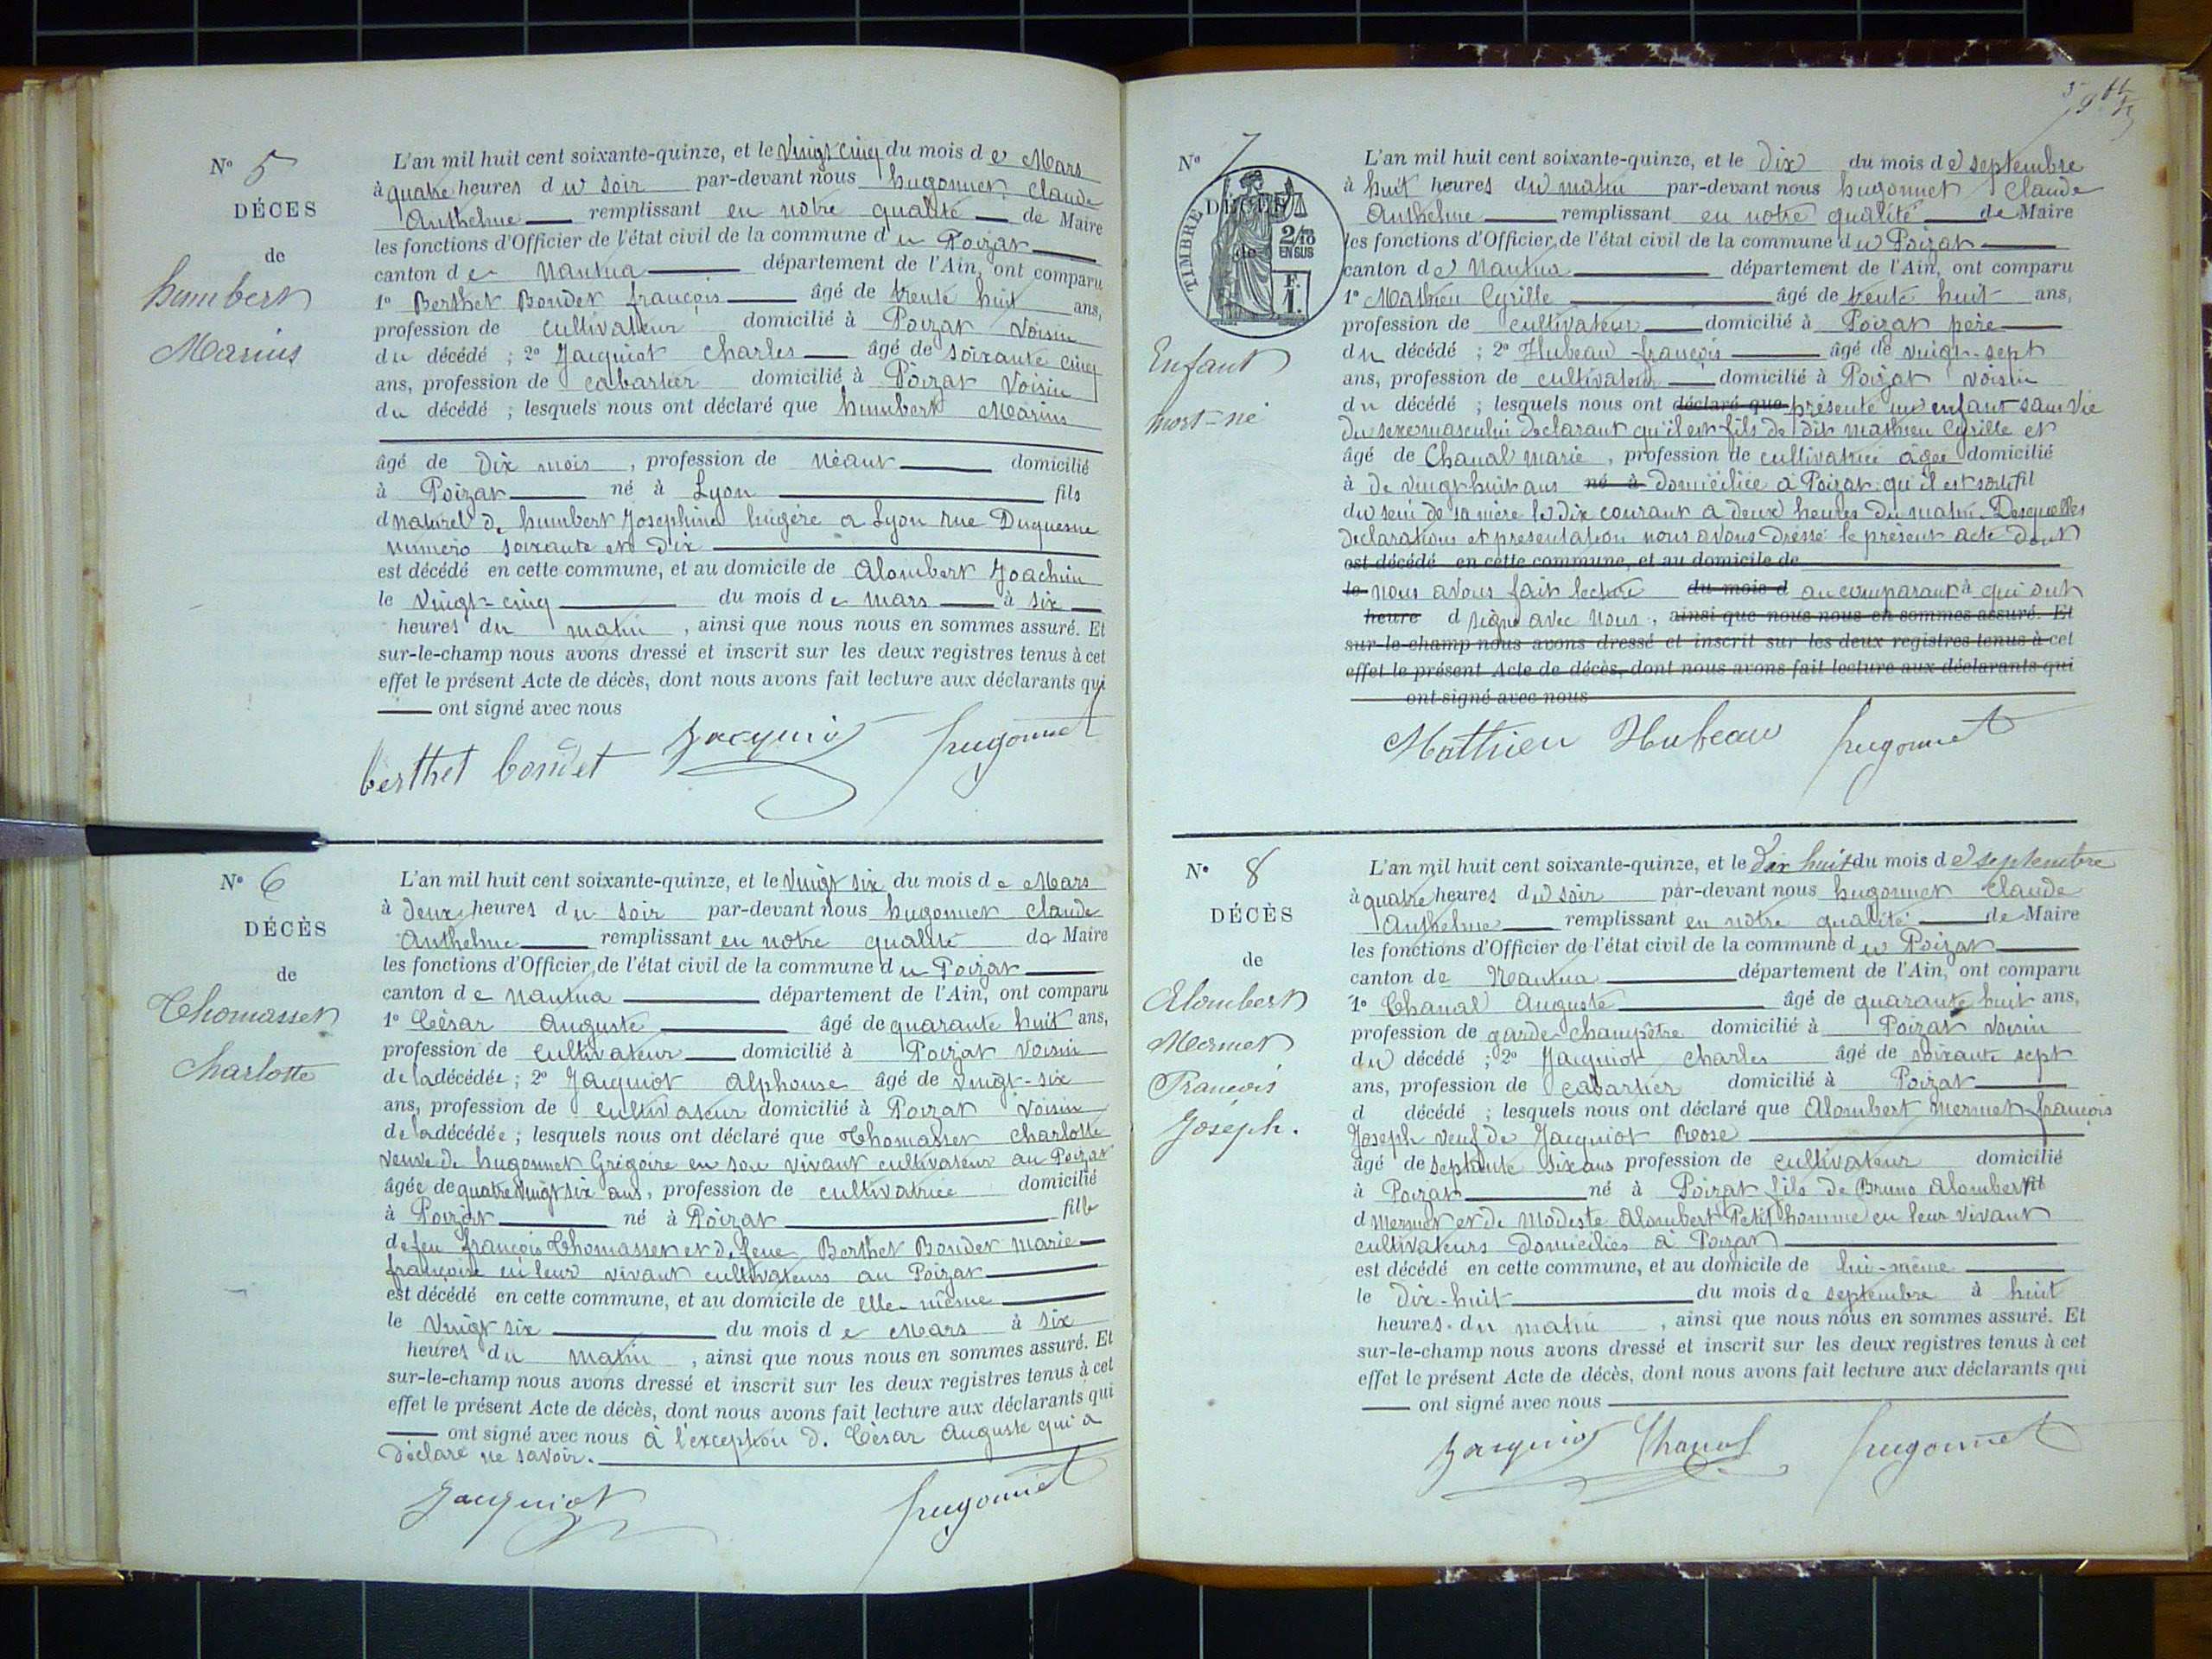 N° 5
DÉCES
de
humbert
Marius
L'an mil huit cent soixante-quinze, et le Vingt cinq du mois de Mars
à quatre heures du soir par-devant nous hugonnet Claude
Anthelme remplissant en notre qualité de Maire
les fonctions d'Officier de l'état civil de la commune du Poizat
canton de Nantua département de l'Ain, ont comparu
1° Berthet Bondet françois âgé de trente huit ans,
profession de cultivateur domicilié à Poizat Voisin
du décédé ; 2° Jacquiot Charles âgé de soixante cinq
ans, profession de cabartier domicilié à Poizat Voisin
du décédé ; lesquels nous ont déclaré que humbert Marius
âgé de Dix mois, profession de Néant domicilié
à Poizat né à Lyon fils
d naturel de humbert Josephine lingère a Lyon rue Duquesne
numéro soixante et dix
est décédé en cette commune, et au domicile de Alombert Joachim
le Vingt-cinq du mois de Mars à six
heures du matin, ainsi que nous nous en sommes assuré. Et
sur-le-champ nous avons dressé et inscrit sur les deux registres tenus à cet
effet le présent Acte de décès, dont nous avons fait lecture aux déclarants qui
ont signé avec nous
berthet bondet Jacquiot hugonnet
N° 6
DÉCÈS
de
Thomasset
Charlotte
L'an mil huit cent soixante-quinze, et le Vingt six du mois de Mars
à deux heures du soir par-devant nous hugonnet Claude
Anthelme remplissant en notre qualité de Maire
les fonctions d'Officier de l'état civil de la commune du Poizat
canton de Nantua département de l'Ain, ont comparu
1° César Auguste âgé de quarante huit ans,
profession de Cultivateur domicilié à Poizat Voisin
de la décédée ; 2° Jacquiot alphonse âgé de Vingt-six
ans, profession de Cultivateur domicilié à Poizat Voisin
de la décédée ; lesquels nous ont déclaré que Thomasset Charlotte
veuve de hugonnet Grégoire en son vivant cultivateur au Poizat
âgée de quatre Vingt six ans, profession de cultivatrice domicilié
à Poizat né à Poizat fille
de feu françois Thomasset et d. feue Berthet Bondet Marie
françoise en leur vivant cultivateurs au Poizat
est décédé en cette commune, et au domicile de elle-même
le Vingt six du mois de Mars à six
heures du Matin, ainsi que nous nous en sommes assuré. Et
sur-le-champ nous avons dressé et inscrit sur les deux registres tenus à cet
effet le présent Acte de décès, dont nous avons fait lecture aux déclarants qui
ont signé avec nous à l'exception d. César Auguste qui a
déclaré ne savoir.
Jacquiot hugonnet
N° 7
DÉCÈS
de
TIMBRE
2/10
EN SUS
F.
1.
Enfant
mort-né
L'an mil huit cent soixante-quinze, et le dix du mois de septembre
à huit heures du matin par-devant nous hugonnet Claude
Anthelme remplissant en notre qualité de Maire
les fonctions d'Officier de l'état civil de la commune du Poizat
canton de Nantua département de l'Ain, ont comparu
1° Mathieu Cyrille âgé de trente huit ans,
profession de cultivateur domicilié à Poizat père
du décédé ; 2° Hubeau françois âgé de vingt-sept
ans, profession de cultivateur domicilié à Poizat voisin
du décédé ; lesquels nous ont déclaré que présenté un enfant sans vie
du sexe masculin déclarant qu'il est fils de dit mathieu Cyrille et
âgé de Chanal Marie, profession de cultivatrice âgée domicilié
à de vingt huit ans né à domiciliée à Poizat qu'il est sorti fil
du sein de sa mère le dix courant a deux heures du matin. Desquelles
déclarations et présentation nous avons dressé le présent acte dont
est décédé en cette commune, et au domicile de
le nous avons fait lecture du mois d au comparant à qui ont
heure d signé avec nous, ainsi que nous nous en sommes assuré. Et
sur-le-champ nous avons dressé et inscrit sur les deux registres tenus à cet
effet le présent Acte de décès, dont nous avons fait lecture aux déclarants qui
ont signé avec nous
Matthieu Hubeau hugonnet
N° 8
DÉCÈS
de
Alombert
Mermet
François
Joseph.
L'an mil huit cent soixante-quinze, et le dix huit du mois de septembre
à quatre heures du soir par-devant nous hugonnet Claude
Anthelme remplissant en notre qualité de Maire
les fonctions d'Officier de l'état civil de la commune du Poizat
canton de Nantua département de l'Ain, ont comparu
1° Chanal Auguste âgé de quarante huit ans,
profession de garde champêtre domicilié à Poizat Voisin
du décédé ; 2° Jacquiot Charles âgé de soixante sept
ans, profession de cabartier domicilié à Poizat
d décédé ; lesquels nous ont déclaré que Alombert mermet françois
Joseph veuf de Jacquiot Rose
âgé de septante six ans profession de cultivateur domicilié
à Poizat né à Poizat fils de Bruno Alombert fil
d Mermet et de Modeste Alombert Petit homme en leur vivant
cultivateurs domiciliés à Poizat
est décédé en cette commune, et au domicile de lui-même
le Dix-huit du mois de septembre à huit
heures du matin, ainsi que nous nous en sommes assuré. Et
sur-le-champ nous avons dressé et inscrit sur les deux registres tenus à cet
effet le présent Acte de décès, dont nous avons fait lecture aux déclarants qui
ont signé avec nous
Jacquiot Chanal hugonnet